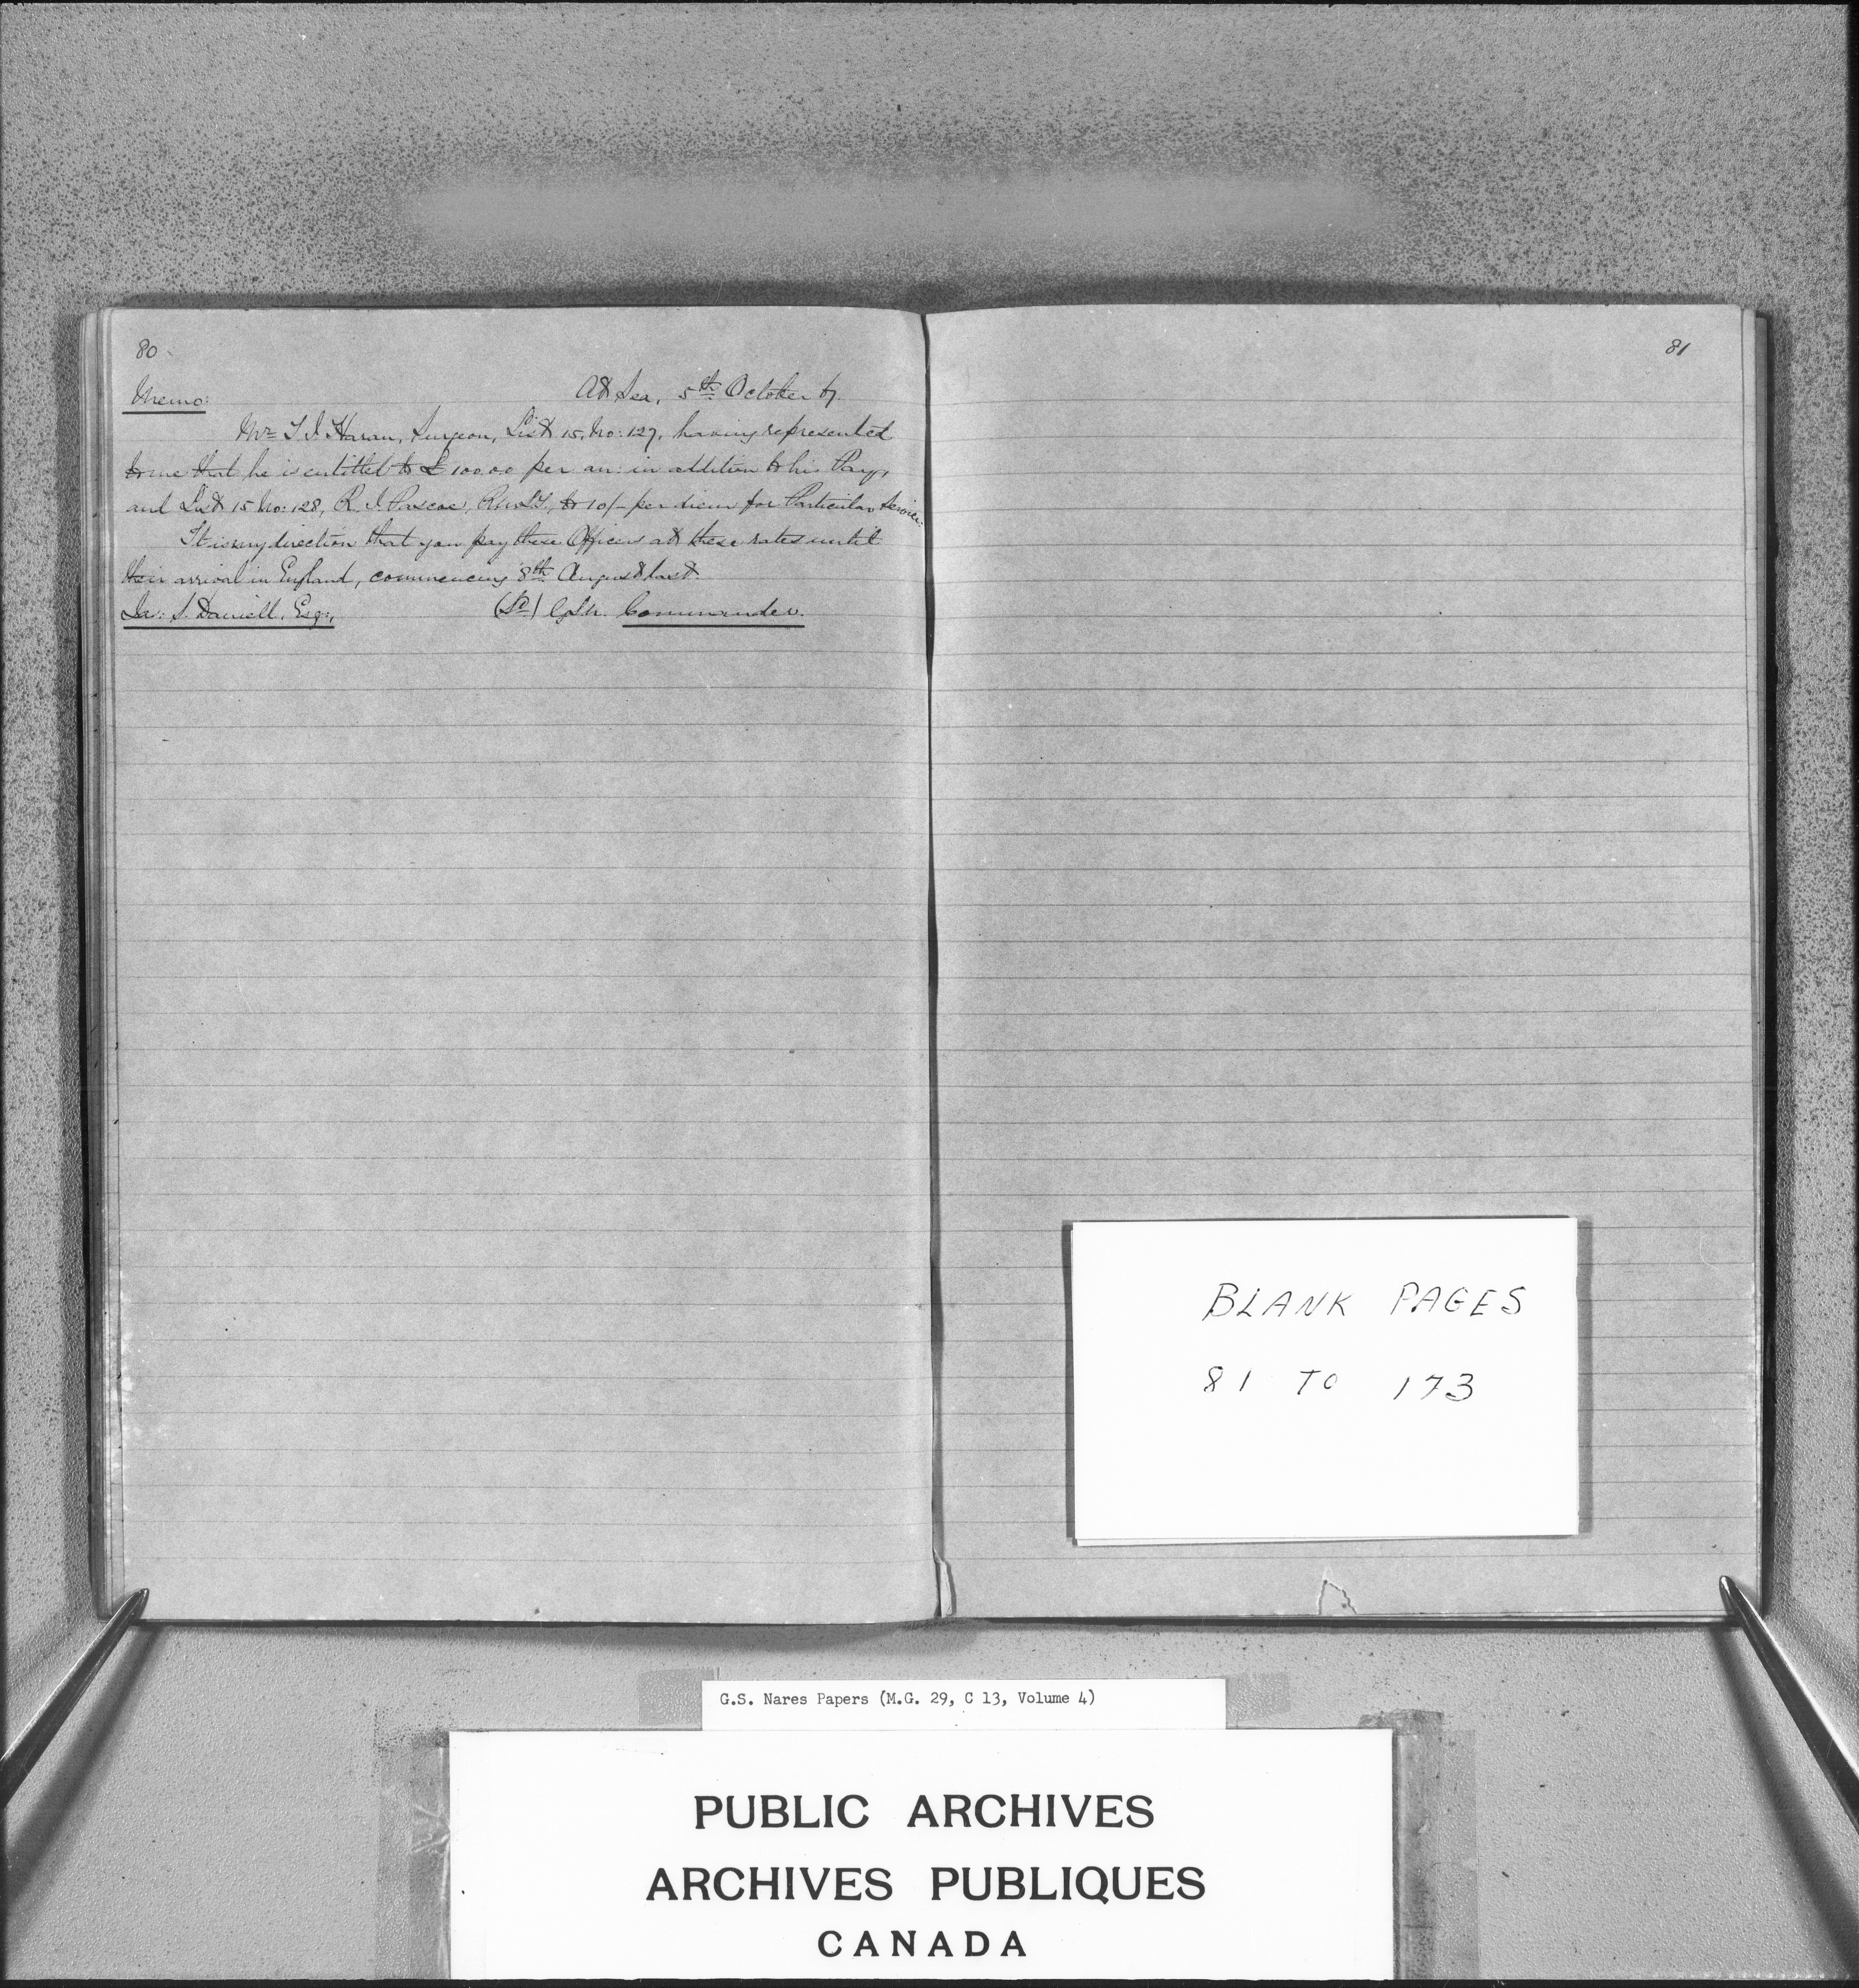 80
Memo:
At Sea, 5th October 67.
Mr T. J. Haran, Surgeon, List 15, No: 127, having represented
to me that he is entitled to £100.0.0 per an: in addition to his Pay,
and List 15 No: 128, R. J. Pascoe, to 10/- per diem for Particular Service.
It is my direction that you pay these Officers at these rates until
their arrival in England, commencing 8th August last.
Jas: S. Daniell, Esq:,
(Sd) Commander.
81
BLANK PAGES
81 TO 173
G.S. Nares Papers (M.G. 29, C 13, Volume 4)
PUBLIC ARCHIVES
ARCHIVES PUBLIQUES
CANADA